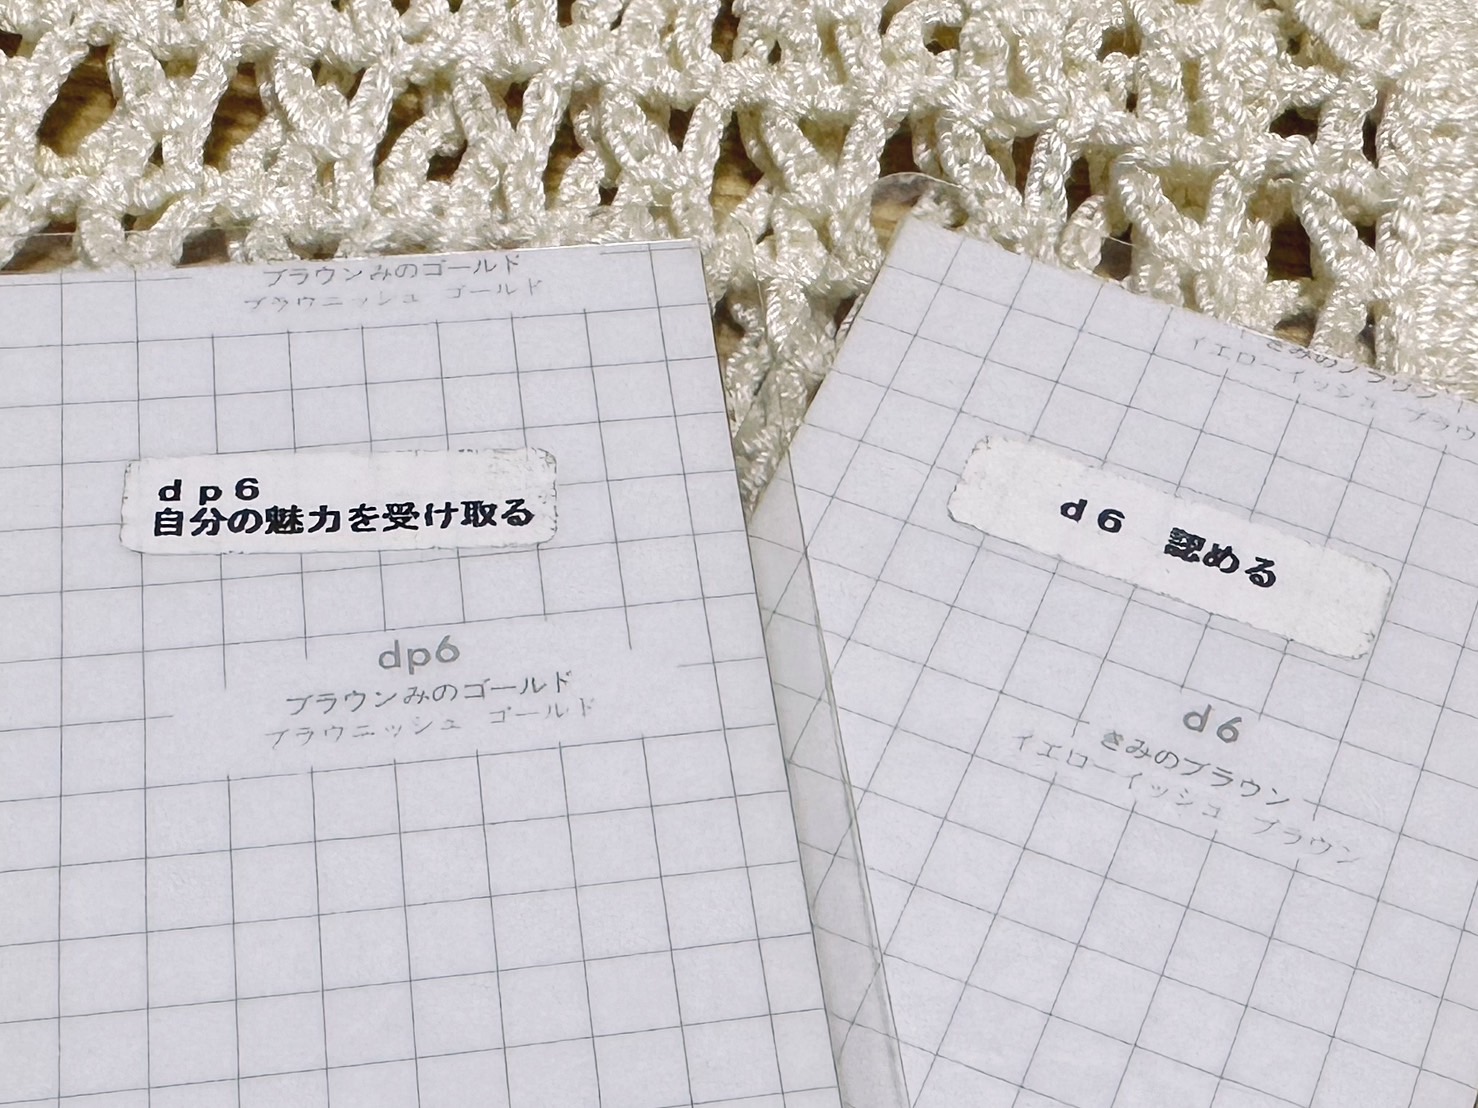 ブラウンみのゴールド
ブラウニッシュ ゴールド
dp6
自分の魅力を受け取る
dp6
ブラウンみのゴールド
ブラウニッシュ ゴールド
きみのブラウン
イエローイッシュ ブラウ
d6 認める
d6
きみのブラウン
イエローイッシュ ブラウン